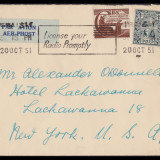 AER-PHOST
20 OCT 51
License your
Radio Promptly
20 OCT 51
Mr Alexander O'Donnell
Hotel Lackawanna
Lackawanna 18
New York. U. S. A